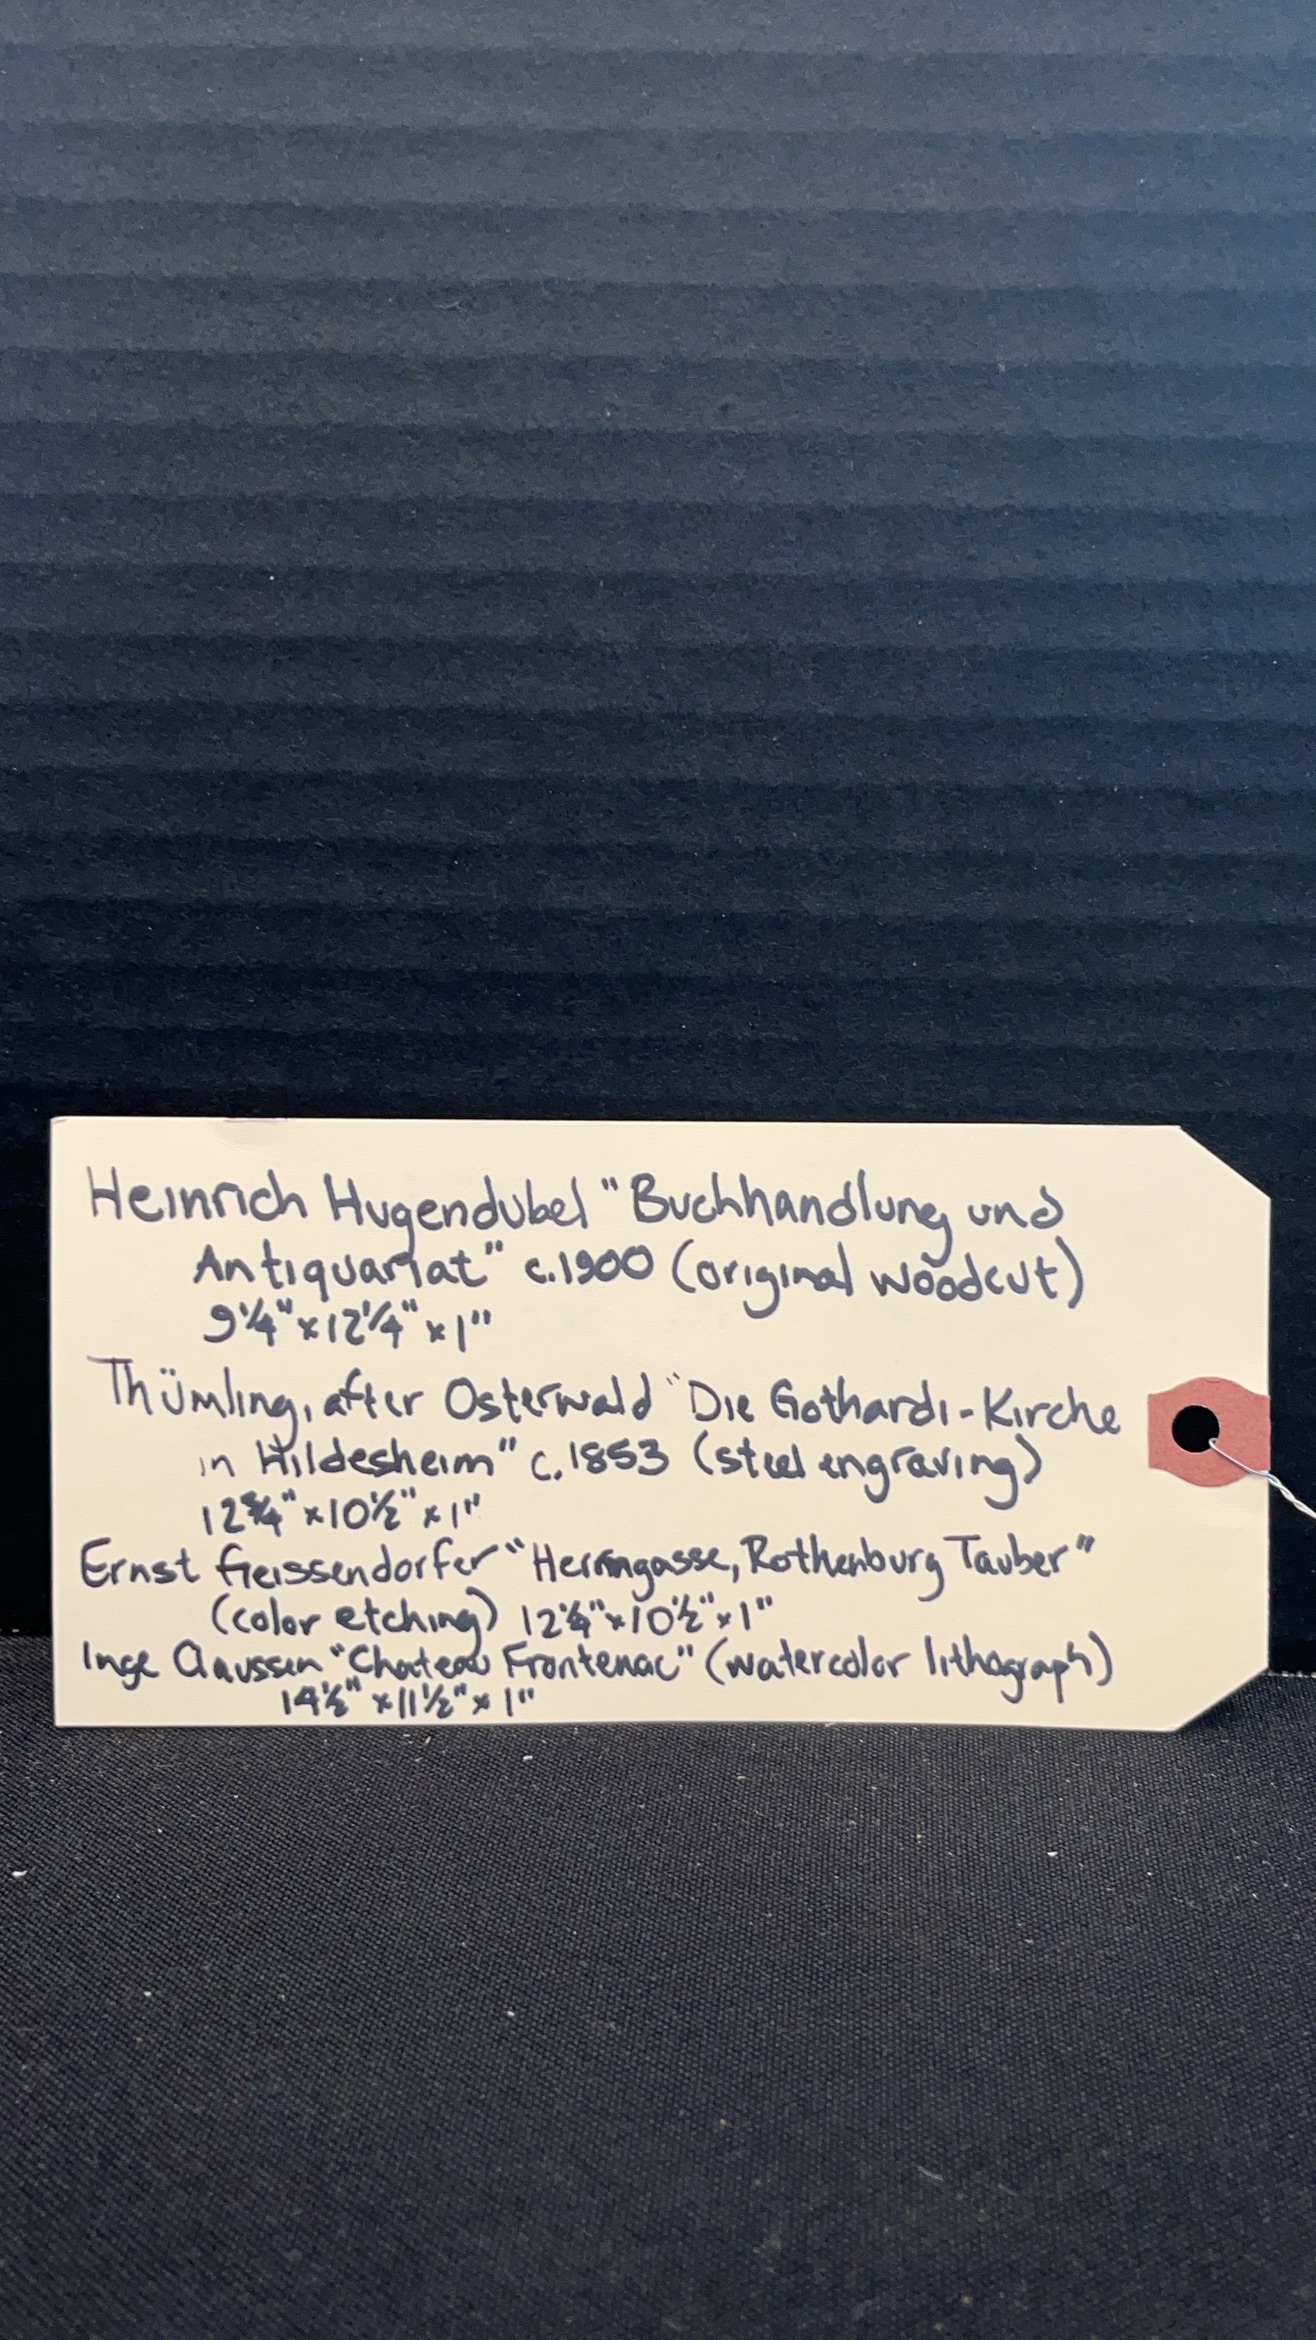 Heinrich Hugendubel "Buchhandlung und
Antiquariat" c.1900 (original woodcut)
9¼" x 12¼" x 1"
Thümling, after Osterwald "Die Gothardi-Kirche
in Hildesheim" c.1853 (steel engraving)
12¾" x 10½" x 1"
Ernst Geissendorfer "Herrngasse, Rothenburg Tauber"
(color etching) 12¼" x 10½" x 1"
Inge Claussen "Chateau Frontenac" (watercolor lithograph)
14½" x 11½" x 1"